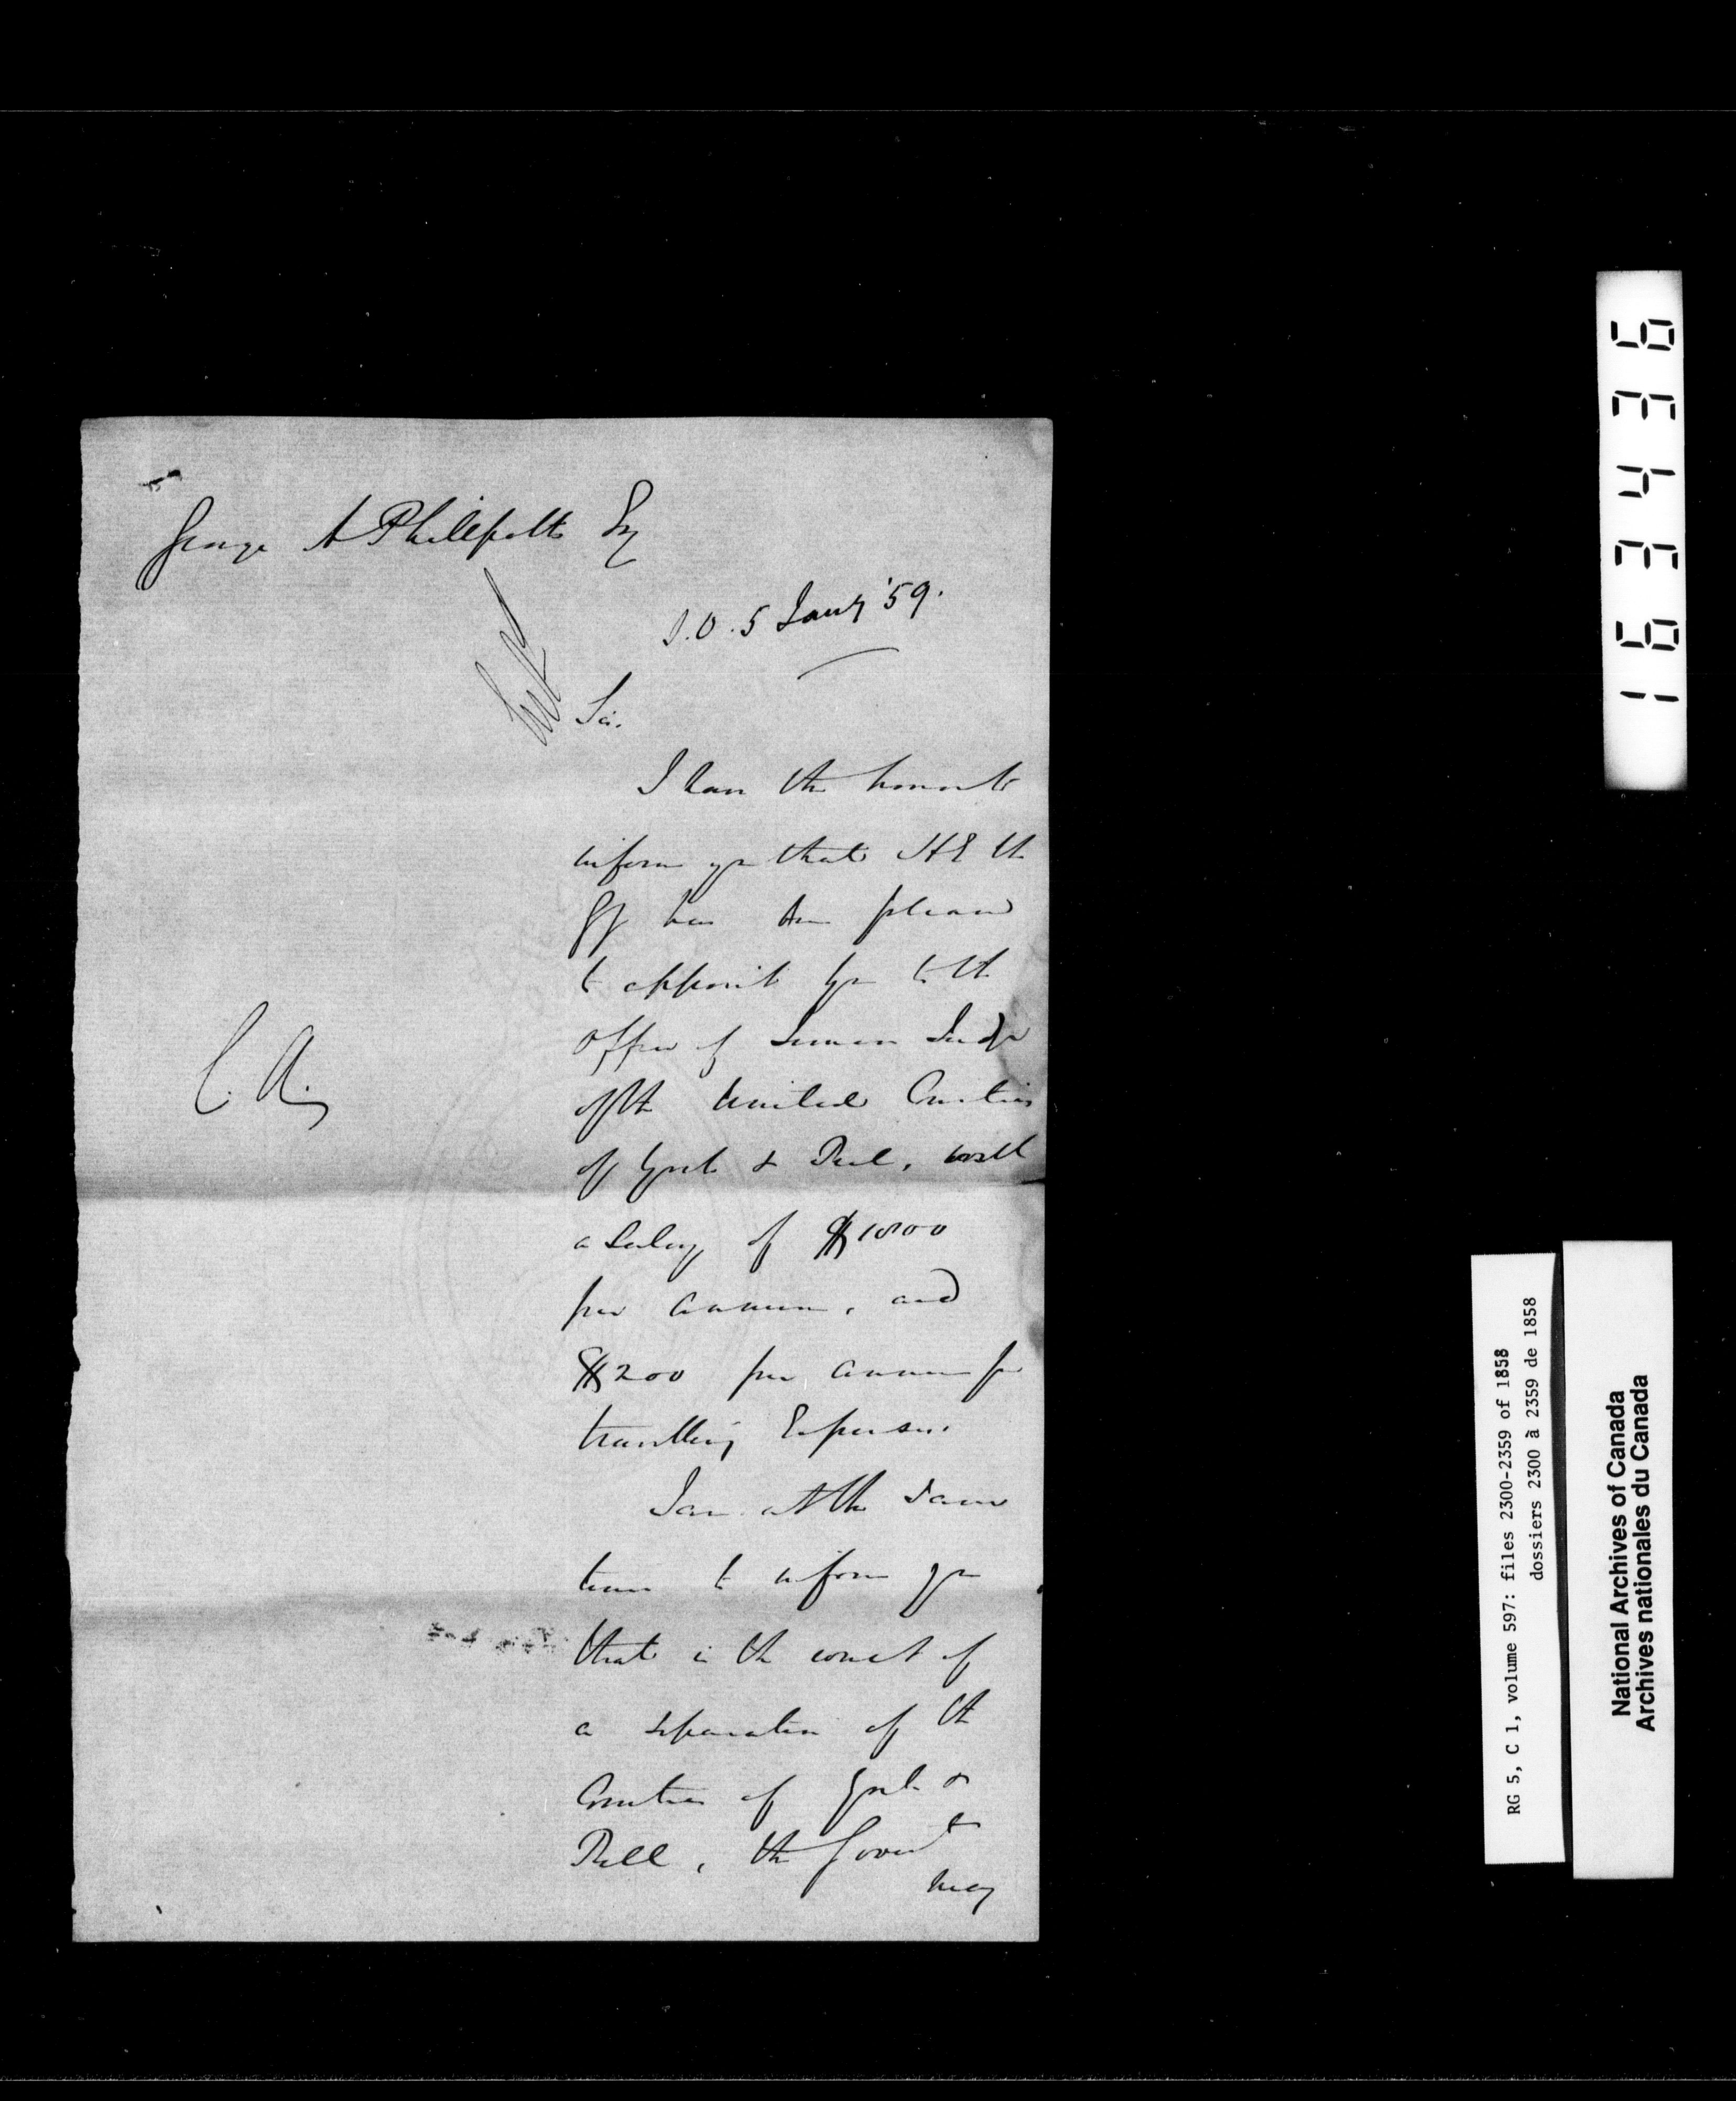 George A Phillpotts Esq
S.O. 5 Jany '59.
Sir.
I have the honor to
inform you that H E the
GG has been pleased
to appoint you to the
office of Junior Judge
of the United Counties
of York & Peel, with
a salary of $1800
per annum, and
$200 per annum for
travelling Expenses.
I am at the same
time to inform you
that in the event of
a separation of the
Counties of York &
Peel, the Govert
may
163436
RG 5, C 1, volume 597: files 2300-2359 of 1858
dossiers 2300 à 2359 de 1858
National Archives of Canada
Archives nationales du Canada